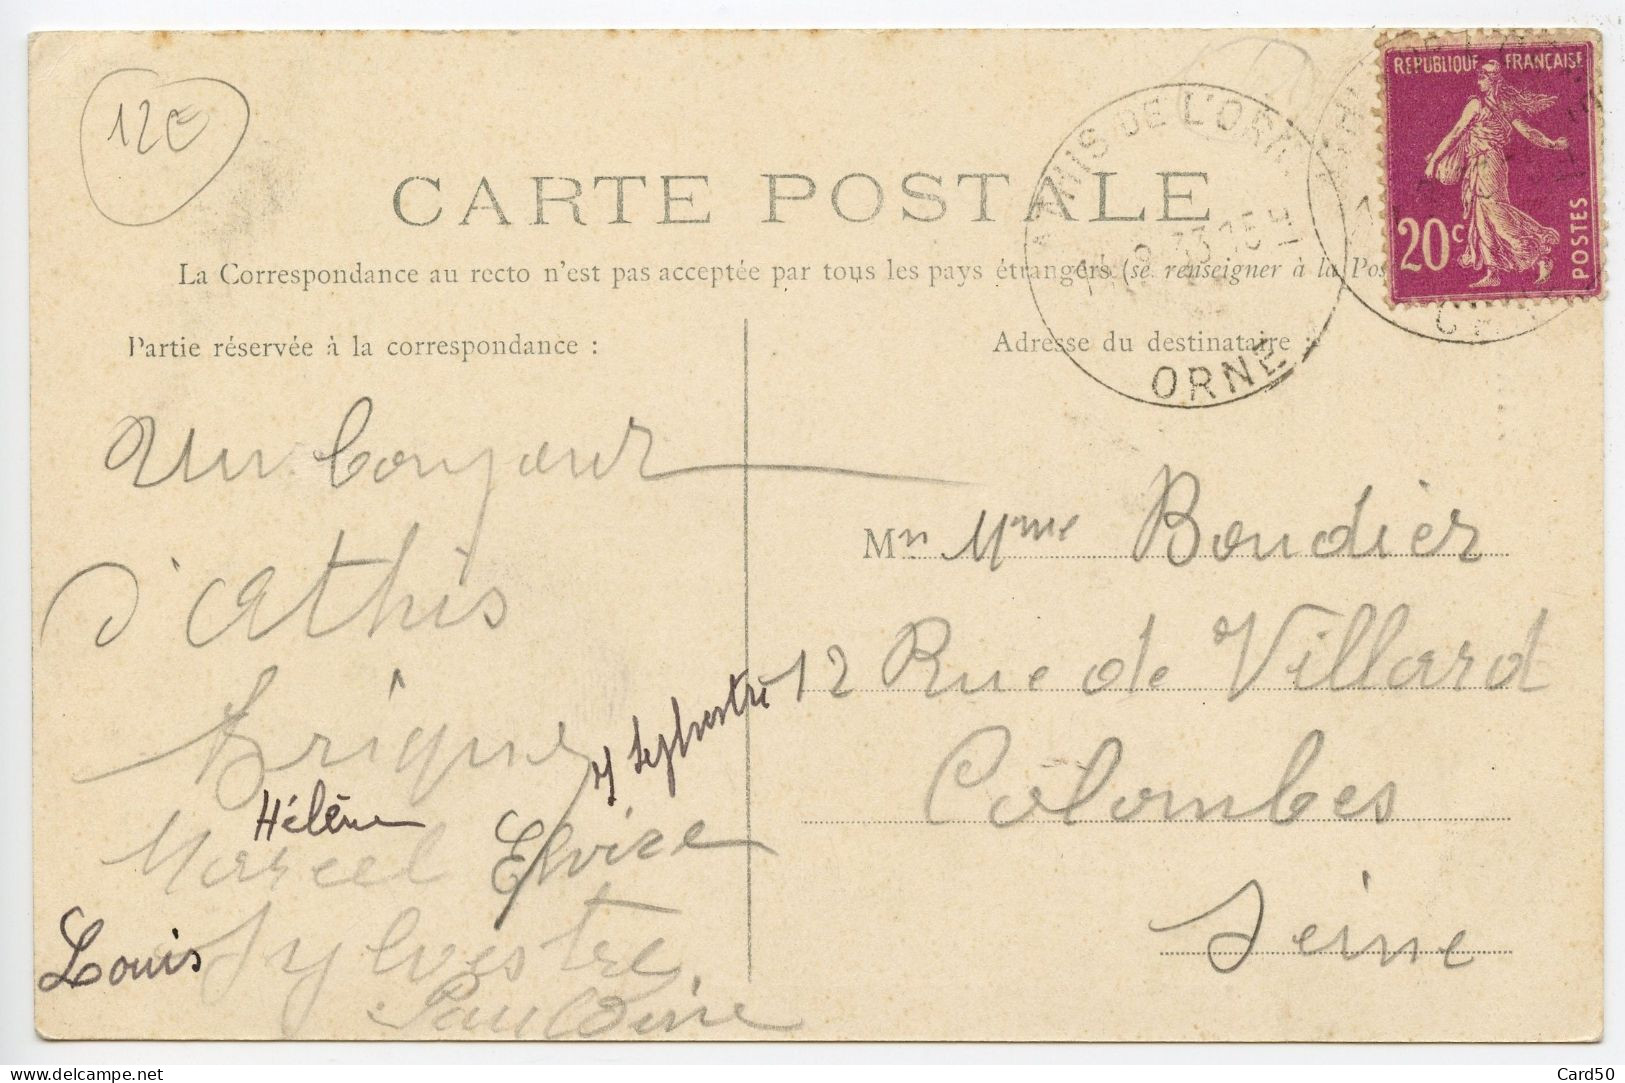 12€
CARTE POSTALE
La Correspondance au recto n'est pas acceptée par tous les pays étrangers (se renseigner à la Pos
Partie réservée à la correspondance :
Adresse du destinataire :
ATHIS DE L'ORNE
9 33
ORNE
REPUBLIQUE FRANÇAISE
20c
POSTES
Un bonjour
d'Athis
Marcel
Hélène
Elvire
Sylvestre
Louis
Sylvestre
Pauldine
Mn Mme Boudier
12 Rue de Villard
Colombes
Seine
Card50